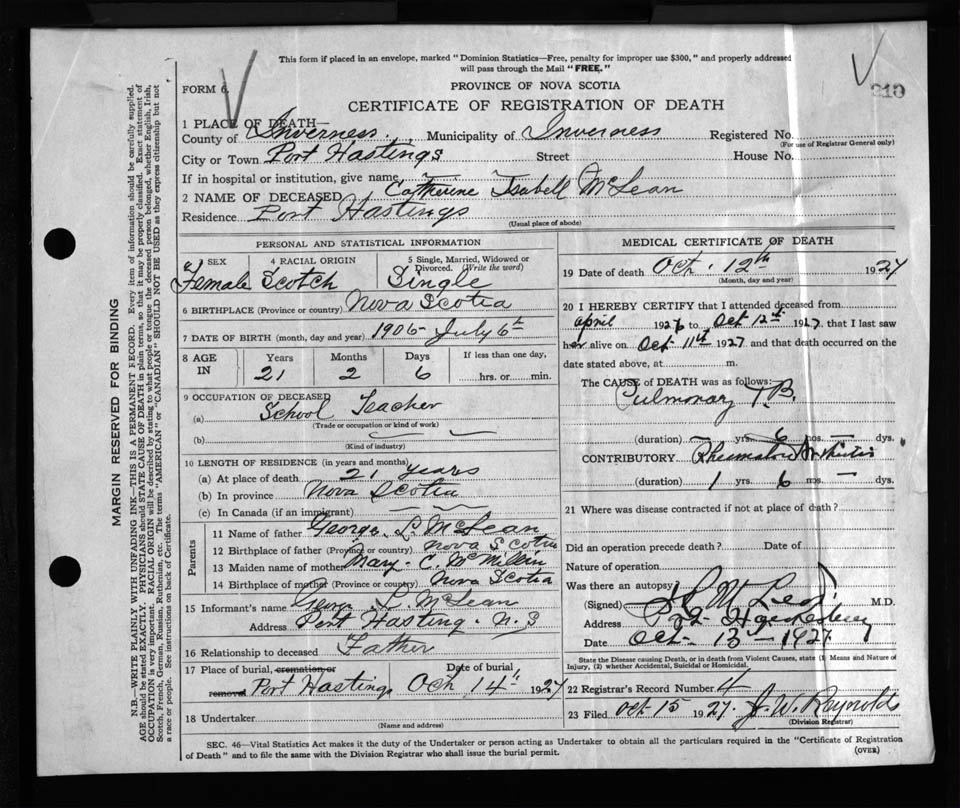 This form if placed in an envelope, marked "Dominion Statistics—Free, penalty for improper use $300," and properly addressed
will pass through the Mail "FREE."
210
FORM 6.
PROVINCE OF NOVA SCOTIA
CERTIFICATE OF REGISTRATION OF DEATH
1 PLACE OF DEATH—
County of Inverness Municipality of Inverness Registered No.
(For use of Registrar General only)
City or Town Port Hastings Street House No.
If in hospital or institution, give name
2 NAME OF DECEASED Catherine Isabell McLean
Residence Port Hastings
(Usual place of abode)
PERSONAL AND STATISTICAL INFORMATION
SEX 4 RACIAL ORIGIN 5 Single, Married, Widowed or Divorced. (Write the word)
Female Scotch Single
6 BIRTHPLACE (Province or country) Nova Scotia
7 DATE OF BIRTH (month, day and year) 1906 July 6th
8 AGE IN Years Months Days If less than one day,
21 2 6 hrs. or min.
9 OCCUPATION OF DECEASED
(a) School Teacher
(Trade or occupation or kind of work)
(b)
(Kind of industry)
10 LENGTH OF RESIDENCE (in years and months)
(a) At place of death 21 years
(b) In province Nova Scotia
(c) In Canada (if an immigrant)
Parents
11 Name of father George L McLean
12 Birthplace of father (Province or country) Nova Scotia
13 Maiden name of mother Mary C. McMillin
14 Birthplace of mother (Province or country) Nova Scotia
15 Informant's name George L McLean
Address Port Hasting. N.S
16 Relationship to deceased Father
17 Place of burial, cremation or Date of burial
removal Port Hastings Oct 14th 1927
18 Undertaker
(Name and address)
MEDICAL CERTIFICATE OF DEATH
19 Date of death Oct. 12th 1927
(Month, day and year)
20 I HEREBY CERTIFY that I attended deceased from
April 1926 to Oct 12th 1927 that I last saw
her alive on Oct 11th 1927 and that death occurred on the
date stated above, at m.
The CAUSE of DEATH was as follows:
Pulmonary T.B.
(duration) yrs. 6 mos. — dys.
CONTRIBUTORY Rheumatoid Arthritis
(duration) 1 yrs 6 mos — dys.
21 Where was disease contracted if not at place of death?
Did an operation precede death? Date of
Nature of operation
Was there an autopsy
(Signed) M.D.
Address Pt. Hawkesbury
Date Oct 13 — 1927
State the Disease causing Death, or in death from Violent Causes, state (1) Means and Nature of
Injury, (2) whether Accidental, Suicidal or Homicidal.
22 Registrar's Record Number 4
23 Filed Oct 15 1927. J. W. Reynolds
(Division Registrar)
SEC. 46—Vital Statistics Act makes it the duty of the Undertaker or person acting as Undertaker to obtain all the particulars required in the "Certificate of Registration
of Death" and to file the same with the Division Registrar who shall issue the burial permit.
(OVER)
MARGIN RESERVED FOR BINDING
N.B.—WRITE PLAINLY WITH UNFADING INK—THIS IS A PERMANENT RECORD. Every item of information should be carefully supplied.
AGE should be stated EXACTLY. PHYSICIANS should STATE CAUSE OF DEATH in plain terms, so that it may be properly classified. Exact statement of
OCCUPATION is very important. RACIAL ORIGIN will be described by stating to what people or tongue the deceased person belonged, whether English, Irish,
Scotch, French, German, Russian, Ruthenian, etc. The terms "AMERICAN" or "CANADIAN" SHOULD NOT BE USED as they express citizenship but not
a race or people. See instructions on back of Certificate.